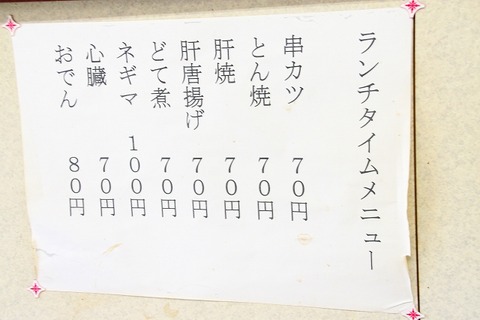 ランチタイムメニュー
串カツ ７０円
とん焼 ７０円
肝焼 ７０円
肝唐揚げ ７０円
どて煮 ７０円
ネギマ １００円
心臓 ７０円
おでん ８０円